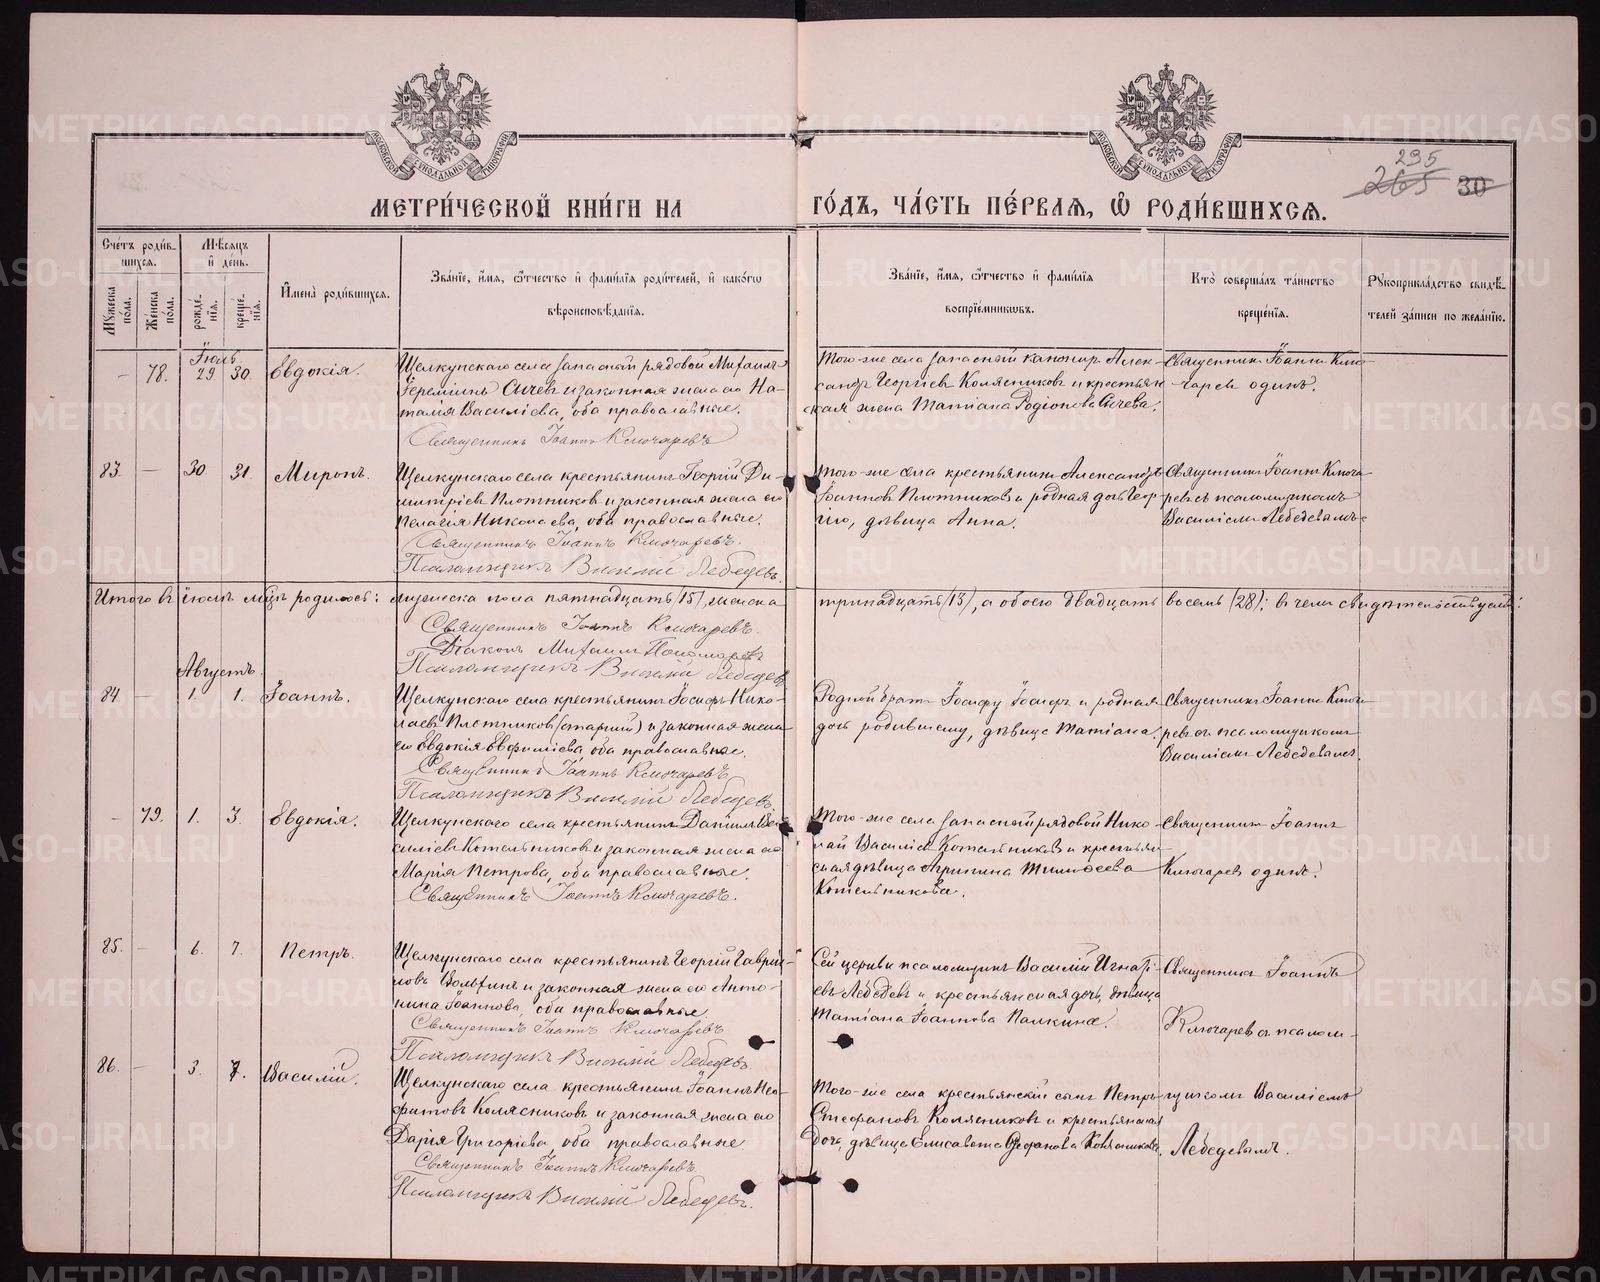 295
265 30
МЕТРИ́ЧЕСКОЙ КНИ́ГИ НА ГО́ДЪ, ЧА́СТЬ ПЕ́РВАЯ, Ѡ РОДИ́ВШИХСЯ.
Сче́тъ роди́в-
шихся.
Мꙋжеска по́ла.
Же́нска по́ла.
Мѣ́сяцъ и де́нь.
рожде́нїя.
креще́нїя.
И҆мена̀ роди́вшихся.
Зва́нїе, и҆́мя, ѻ҆́тчество и҆ фами́лїя роди́телей, и҆ како́гѡ
вѣроисповѣ́данїя.
Зва́нїе, и҆́мя, ѻ҆́тчество и҆ фами́лїя
воспрїе́мниковъ.
Кто̀ соверша́лъ та́инство
креще́нїя.
Рꙋкоприкла́дство свидѣ́-
телей за́писи по жела́нїю.
Іюль
– 78. 29 30. Евдокія.
Щелкунскаго села запасный рядовой Михаилъ
Іереміинъ Сычевъ и законная жена его На-
талія Василіева, оба православные.
Священникъ Іоаннъ Ключаревъ
Того-же села запасный канониръ Алек-
сандръ Георгіевъ Колясниковъ и крестьян-
ская жена Татіана Родіонова Сычева.
Священникъ Іоаннъ Клю-
чаревъ одинъ.
83. – 30 31. Миронъ.
Щелкунскаго села крестьянинъ Георгій Ди-
митріевъ Плотниковъ и законная жена его
Пелагія Николаева, оба православные.
Священникъ Іоаннъ Ключаревъ.
Псаломщикъ Василій Лебедевъ.
Того-же села крестьянинъ Александръ
Іоанновъ Плотниковъ и родная дочь Геор-
гію, дѣвица Анна.
Священникъ Іоаннъ Ключа-
ревъ съ псаломщикомъ
Василіемъ Лебедевымъ.
Итого въ іюлѣ мцѣ родилось: мужеска пола пятнадцать (15), женска тринадцать (13), а обоего двадцать восемь (28); въ чемъ свидѣтельствуемъ:
Священникъ Іоаннъ Ключаревъ.
Діаконъ Михаилъ Пономаревъ
Псаломщикъ Василій Лебедевъ
Августъ
84 – 1. 1. Іоаннъ.
Щелкунскаго села крестьянинъ Іосифъ Нико-
лаевъ Плотниковъ (старшій) и законная жена
его Евдокія Евфиміева, оба православные.
Священникъ Іоаннъ Ключаревъ
Псаломщикъ Василій Лебедевъ.
Родной братъ Іосифу Іосифъ и родная
дочь родившему, дѣвица Татіана.
Священникъ Іоаннъ Ключа-
ревъ съ псаломщикомъ
Василіемъ Лебедевымъ.
– 79. 1. 3. Евдокія.
Щелкунскаго села крестьянинъ Даніилъ Ва-
силіевъ Котельниковъ и законная жена его
Марія Петрова, оба православные.
Священникъ Іоаннъ Ключаревъ.
Того-же села запасный рядовой Нико-
лай Василіевъ Котельниковъ и крестьян-
ская дѣвица Агрипина Тимоѳеева
Котельникова.
Священникъ Іоаннъ
Ключаревъ одинъ.
85. – 6. 7. Петръ.
Щелкунскаго села крестьянинъ Георгій Гаврі-
ловъ и законная жена его Анто-
нина Іоаннова, оба православные.
Священникъ Іоаннъ Ключаревъ
Псаломщикъ Василій Лебедевъ.
Сей церкви псаломщикъ Василій Игнаті-
евъ Лебедевъ и крестьянская дочь, дѣвица
Татіана Іоаннова Палкина.
Священникъ Іоаннъ
Ключаревъ съ псалом-
86. – 3. 7. Василій.
Щелкунскаго села крестьянинъ Іоаннъ Нео-
фитовъ Колясниковъ и законная жена его
Дарія Григоріева, оба православные.
Священникъ Іоаннъ Ключаревъ
Псаломщикъ Василій Лебедевъ.
Того-же села крестьянскій сынъ Петръ
Стефановъ Колясниковъ и крестьянская
дочь, дѣвица Елисавета Стефанова Колясникова.
щикомъ Василіемъ
Лебедевымъ.
METRIKI.GASO-URAL.RU